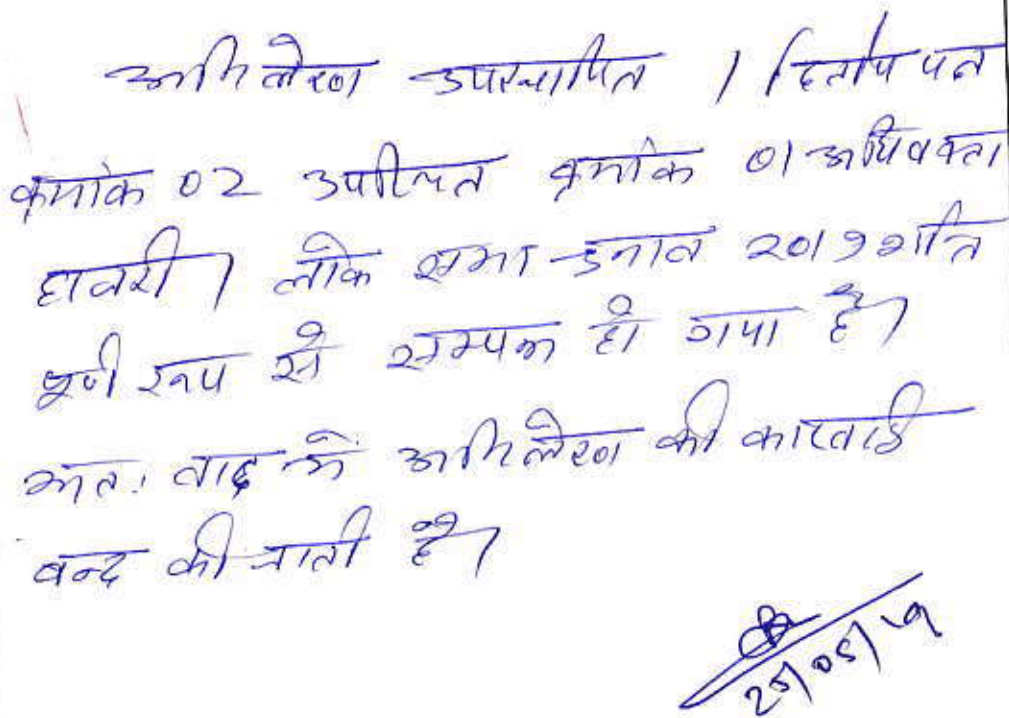 अभिलेख उपस्थापित । द्वितीय पक्ष
क्रमांक 02 उपस्थित क्रमांक 01 अधिवक्ता
हाजरी । लोक सभा चुनाव 2019 शांति
पूर्ण रूप से सम्पन्न हो गया है।
अतः वाद के अभिलेख की कारवाई
बन्द की जाती है।
25/05/19